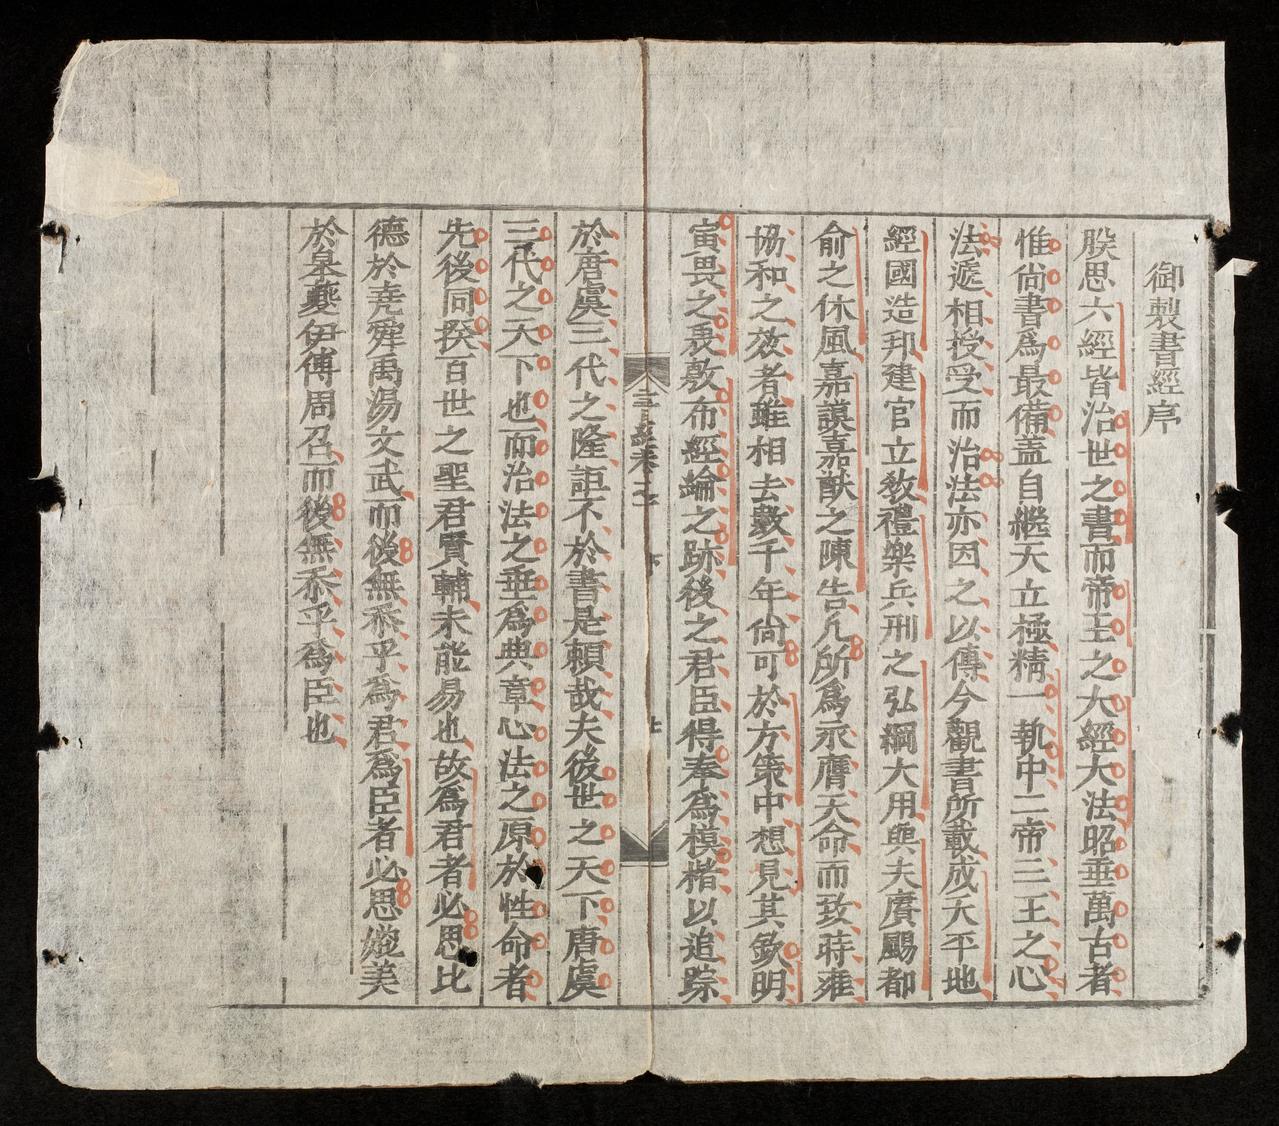 御製書經序
朕思六經皆治世之書而帝王之大經大法昭垂萬古者
惟尚書爲最備蓋自繼天立極精一執中二帝三王之心
法遞相授受而治法亦因之以傳今觀書所載成天平地
經國造邦建官立教禮樂兵刑之弘綱大用與夫賡颺都
俞之休風嘉謨嘉猷之陳告凡所爲永膺天命而致時雍
協和之效者雖相去數千年尙可於方策中想見其欽明
寅畏之衷敷布經綸之跡後之君臣得奉爲模楷以追踪
五經卷之
於唐虞三代之隆詎不於書是賴哉夫後世之天下唐虞
三代之天下也而治法之垂爲典章心法之原於性命者
先後同揆百世之聖君賢輔未能易也故爲君者必思比
德於堯舜禹湯文武而後無忝乎爲君爲臣者必思媲美
於皋夔伊傅周召而後無忝乎爲臣也